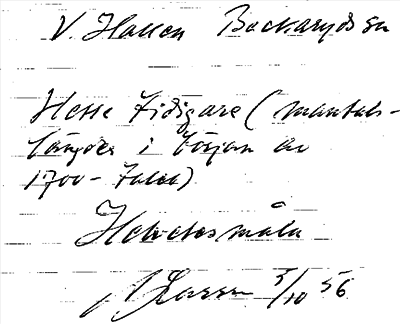 V. Hallen Backaryds sn
Hette tidigare (mantals-
längder i början av
1700-talet)
Helvetesmåla
Larsen 3/10 56